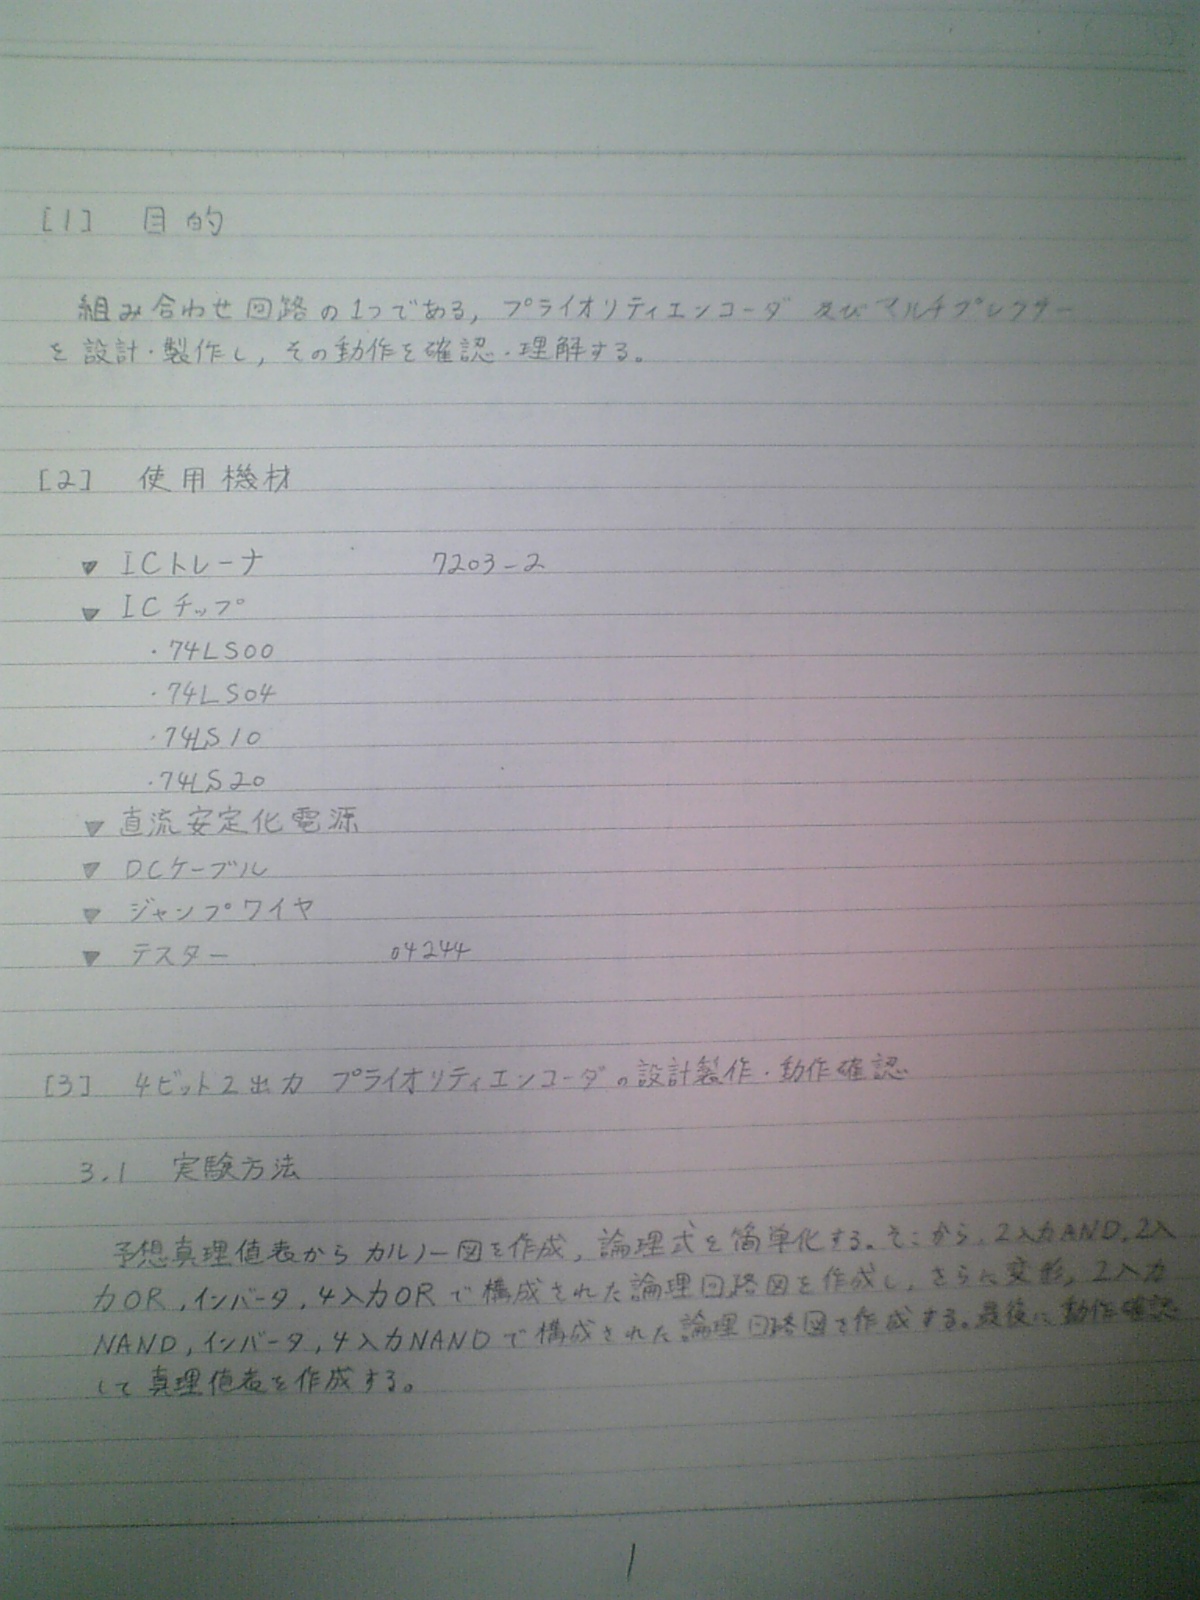 [1] 目的
組み合わせ回路の1つである, プライオリティエンコーダ 及びマルチプレクサー
を設計・製作し, その動作を確認・理解する。
[2] 使用機材
▼ ICトレーナ 7203-2
▼ ICチップ
・74LS00
・74LS04
・74LS10
・74LS20
▼ 直流安定化電源
▼ DCケーブル
▼ ジャンプワイヤ
▼ テスター 04244
[3] 4ビット2出力 プライオリティエンコーダの設計製作・動作確認
3.1 実験方法
予想真理値表からカルノー図を作成, 論理式を簡単化する。そこから, 2入力AND, 2入
力OR, インバータ, 4入力ORで構成された論理回路図を作成し, さらに変形, 2入力
NAND, インバータ, 4入力NANDで構成された論理回路図を作成する。最後に動作確認
して真理値表を作成する。
1